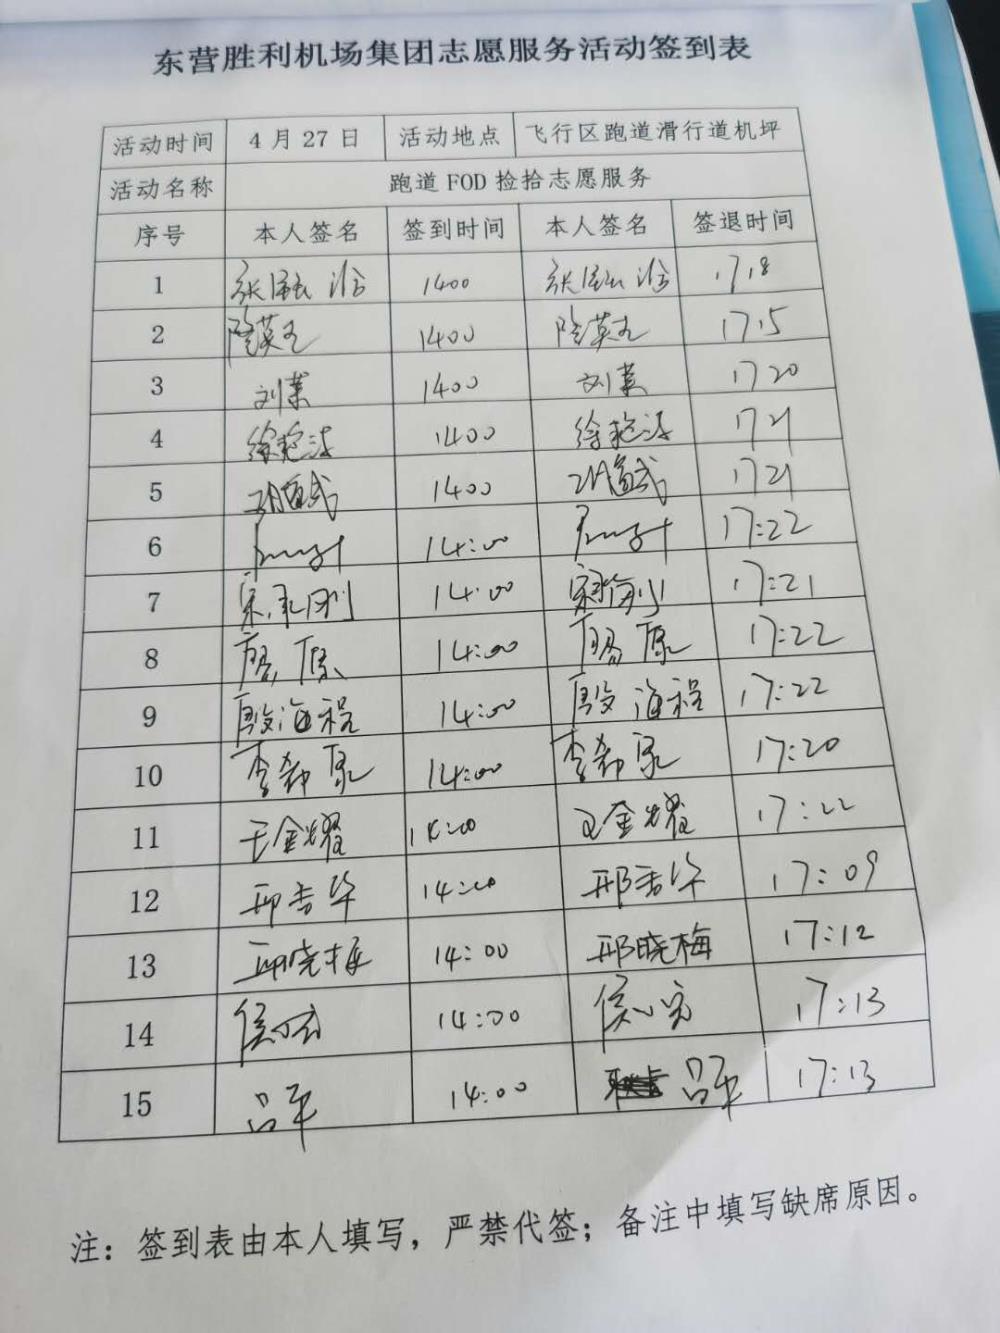 东营胜利机场集团志愿服务活动签到表
活动时间 4月27日 活动地点 飞行区跑道滑行道机坪
活动名称 跑道FOD捡拾志愿服务
序号 本人签名 签到时间 本人签名 签退时间
1 1400 1718
2 1400 1715
3 1400 1720
4 1400 1721
5 1400 1721
6 14:00 17:22
7 14:00 17:21
8 14:00 17:22
9 殷海程 14:00 殷海程 17:22
10 14:00 17:20
11 王金耀 14:00 王金耀 17:22
12 邢吉华 14:00 邢吉华 17:09
13 邢晓梅 14:00 邢晓梅 17:12
14 14:00 17:13
15 吕平 14:00 吕平 17:13
注：签到表由本人填写，严禁代签；备注中填写缺席原因。